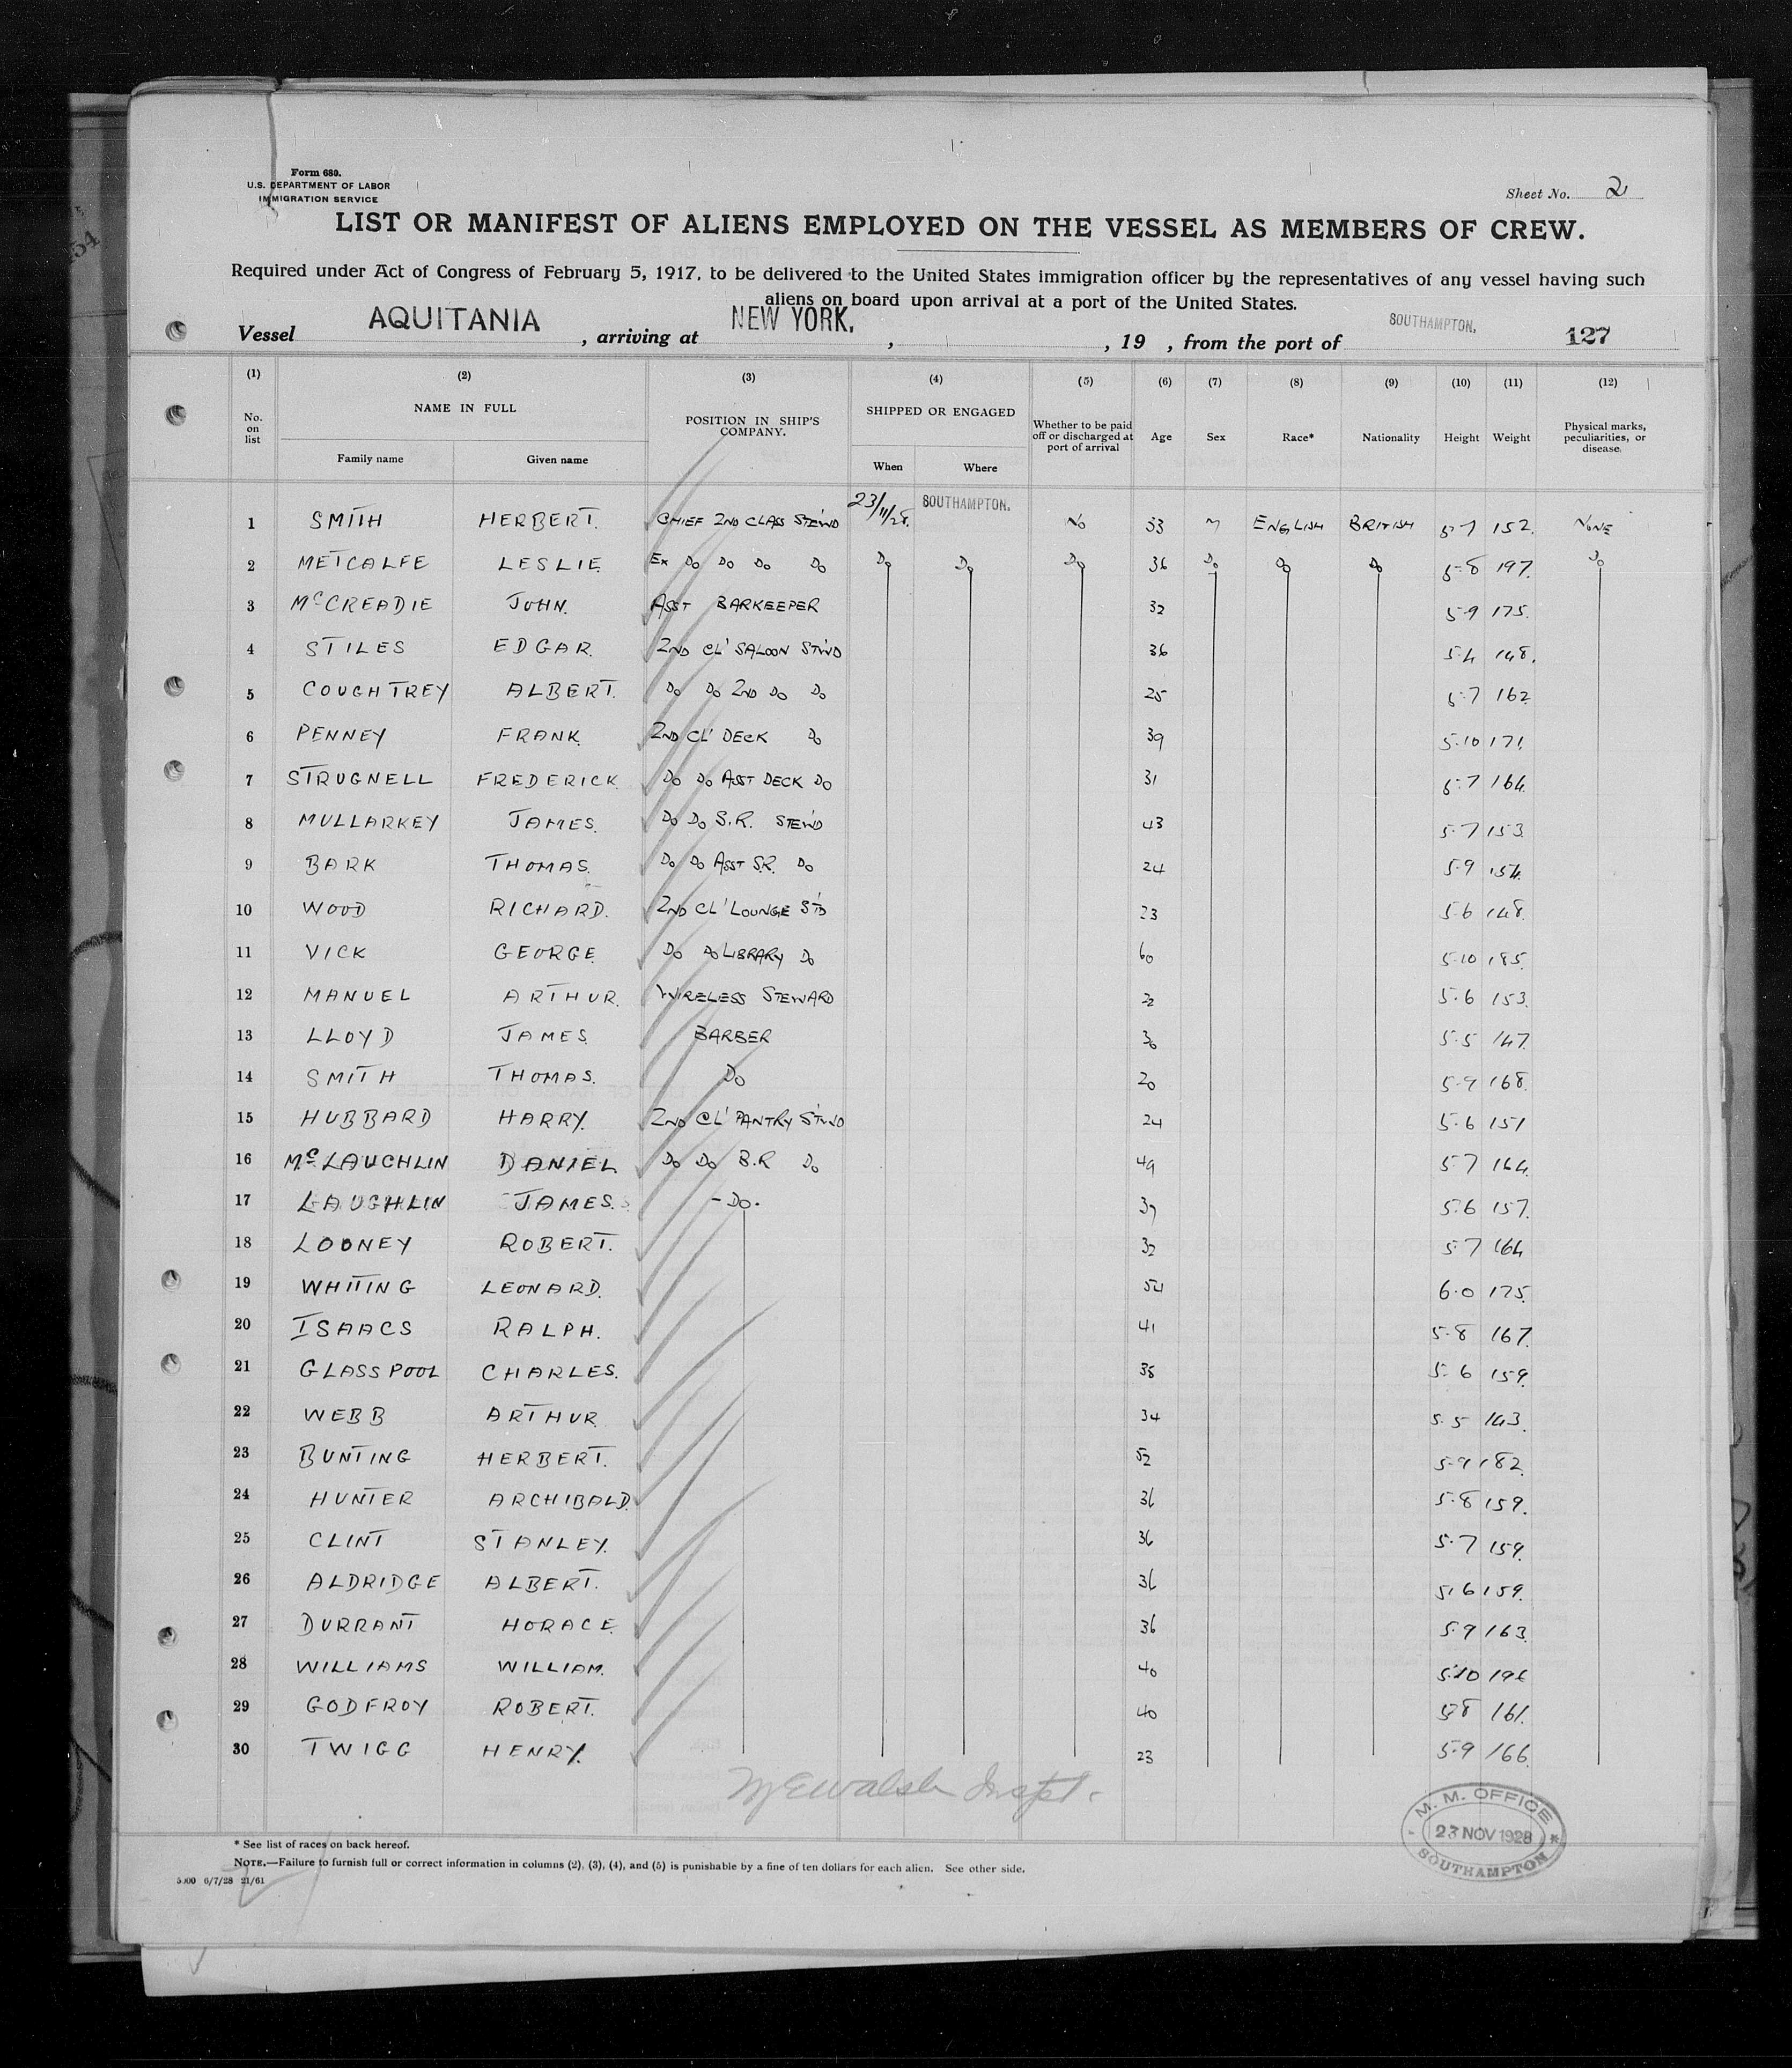 Form 680.
U.S. DEPARTMENT OF LABOR
IMMIGRATION SERVICE
Sheet No. 2
LIST OR MANIFEST OF ALIENS EMPLOYED ON THE VESSEL AS MEMBERS OF CREW.
Required under Act of Congress of February 5, 1917, to be delivered to the United States immigration officer by the representatives of any vessel having such
aliens on board upon arrival at a port of the United States.
Vessel AQUITANIA , arriving at NEW YORK, , , 19 , from the port of SOUTHAMPTON. 127
(1) (2) (3) (4) (5) (6) (7) (8) (9) (10) (11) (12)
No. on list NAME IN FULL Family name Given name POSITION IN SHIP'S COMPANY. SHIPPED OR ENGAGED When Where Whether to be paid off or discharged at port of arrival Age Sex Race* Nationality Height Weight Physical marks, peculiarities, or disease.
1 SMITH HERBERT. CHIEF 2ND CLASS STEWD 23/11/28. SOUTHAMPTON. No 33 M ENGLISH BRITISH 5-7 152. NONE
2 METCALFE LESLIE Ex Do Do Do Do Do Do Do 36 Do Do Do 5-8 197. Do
3 McCREADIE JOHN. ASST BARKEEPER 32 5-9 175.
4 STILES EDGAR. 2ND CL' SALOON STWD 36 5.4 148.
5 COUGHTREY ALBERT. Do Do 2ND Do Do 25 5-7 162
6 PENNEY FRANK. 2ND CL' DECK Do 39 5.10 171.
7 STRUGNELL FREDERICK. Do Do ASST DECK Do 31 5.7 164.
8 MULLARKEY JAMES. Do Do S.R. STEWD 43 5.7 153
9 BARK THOMAS. Do Do ASST S.R. Do 24 5.9 154.
10 WOOD RICHARD. 2ND CL' LOUNGE STD 23 5.6 148.
11 VICK GEORGE. Do Do LIBRARY Do 60 5.10 185.
12 MANUEL ARTHUR. WIRELESS STEWARD 22 5.6 153.
13 LLOYD JAMES. BARBER 30 5.5 147.
14 SMITH THOMAS. Do 20 5.9 168.
15 HUBBARD HARRY. 2ND CL' PANTRY STWD 24 5.6 151
16 McLAUCHLIN DANIEL Do Do B.R Do 49 5.7 164.
17 LAUGHLIN JAMES. - Do. 37 5.6 157.
18 LOONEY ROBERT. 32 5.7 164
19 WHITING LEONARD. 54 6.0 175.
20 ISAACS RALPH. 41 5.8 167.
21 GLASSPOOL CHARLES. 38 5.6 159.
22 WEBB ARTHUR. 34 5.5 143.
23 BUNTING HERBERT. 52 5.9 182.
24 HUNTER ARCHIBALD. 36 5.8 159.
25 CLINT STANLEY. 36 5.7 159.
26 ALDRIDGE ALBERT. 36 5.6 159.
27 DURRANT HORACE. 36 5.9 163.
28 WILLIAMS WILLIAM. 40 5.10 196
29 GODFROY ROBERT. 40 5.8 161.
30 TWIGG HENRY. 23 5.9 166.
Walsh Inspt.
M. M. OFFICE
23 NOV 1928
SOUTHAMPTON
* See list of races on back hereof.
NOTE.—Failure to furnish full or correct information in columns (2), (3), (4), and (5) is punishable by a fine of ten dollars for each alien. See other side.
6/7/28 21/61